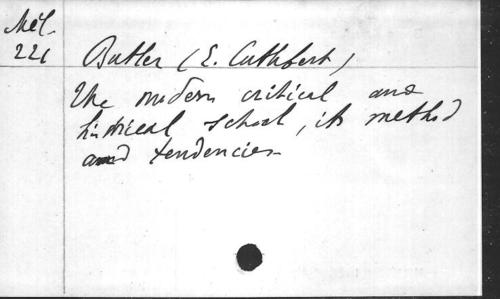 Mél.
221
Butler (E. Cuthbert)
The modern critical and
historical school, its method
and tendencies